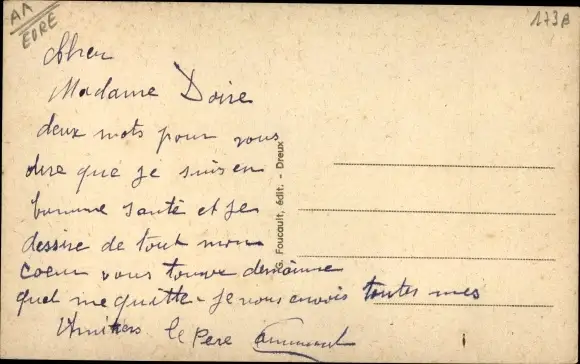 AA
EURE
173B
cher
Madame Doire
deux mots pour vous
dire que je suis en
bonne santé et je
dessire de tout mon
coeur vous trouve de maime
quel me quitte - je vous envois toutes mes
Amities le Pere
G. Foucault, édit. - Dreux